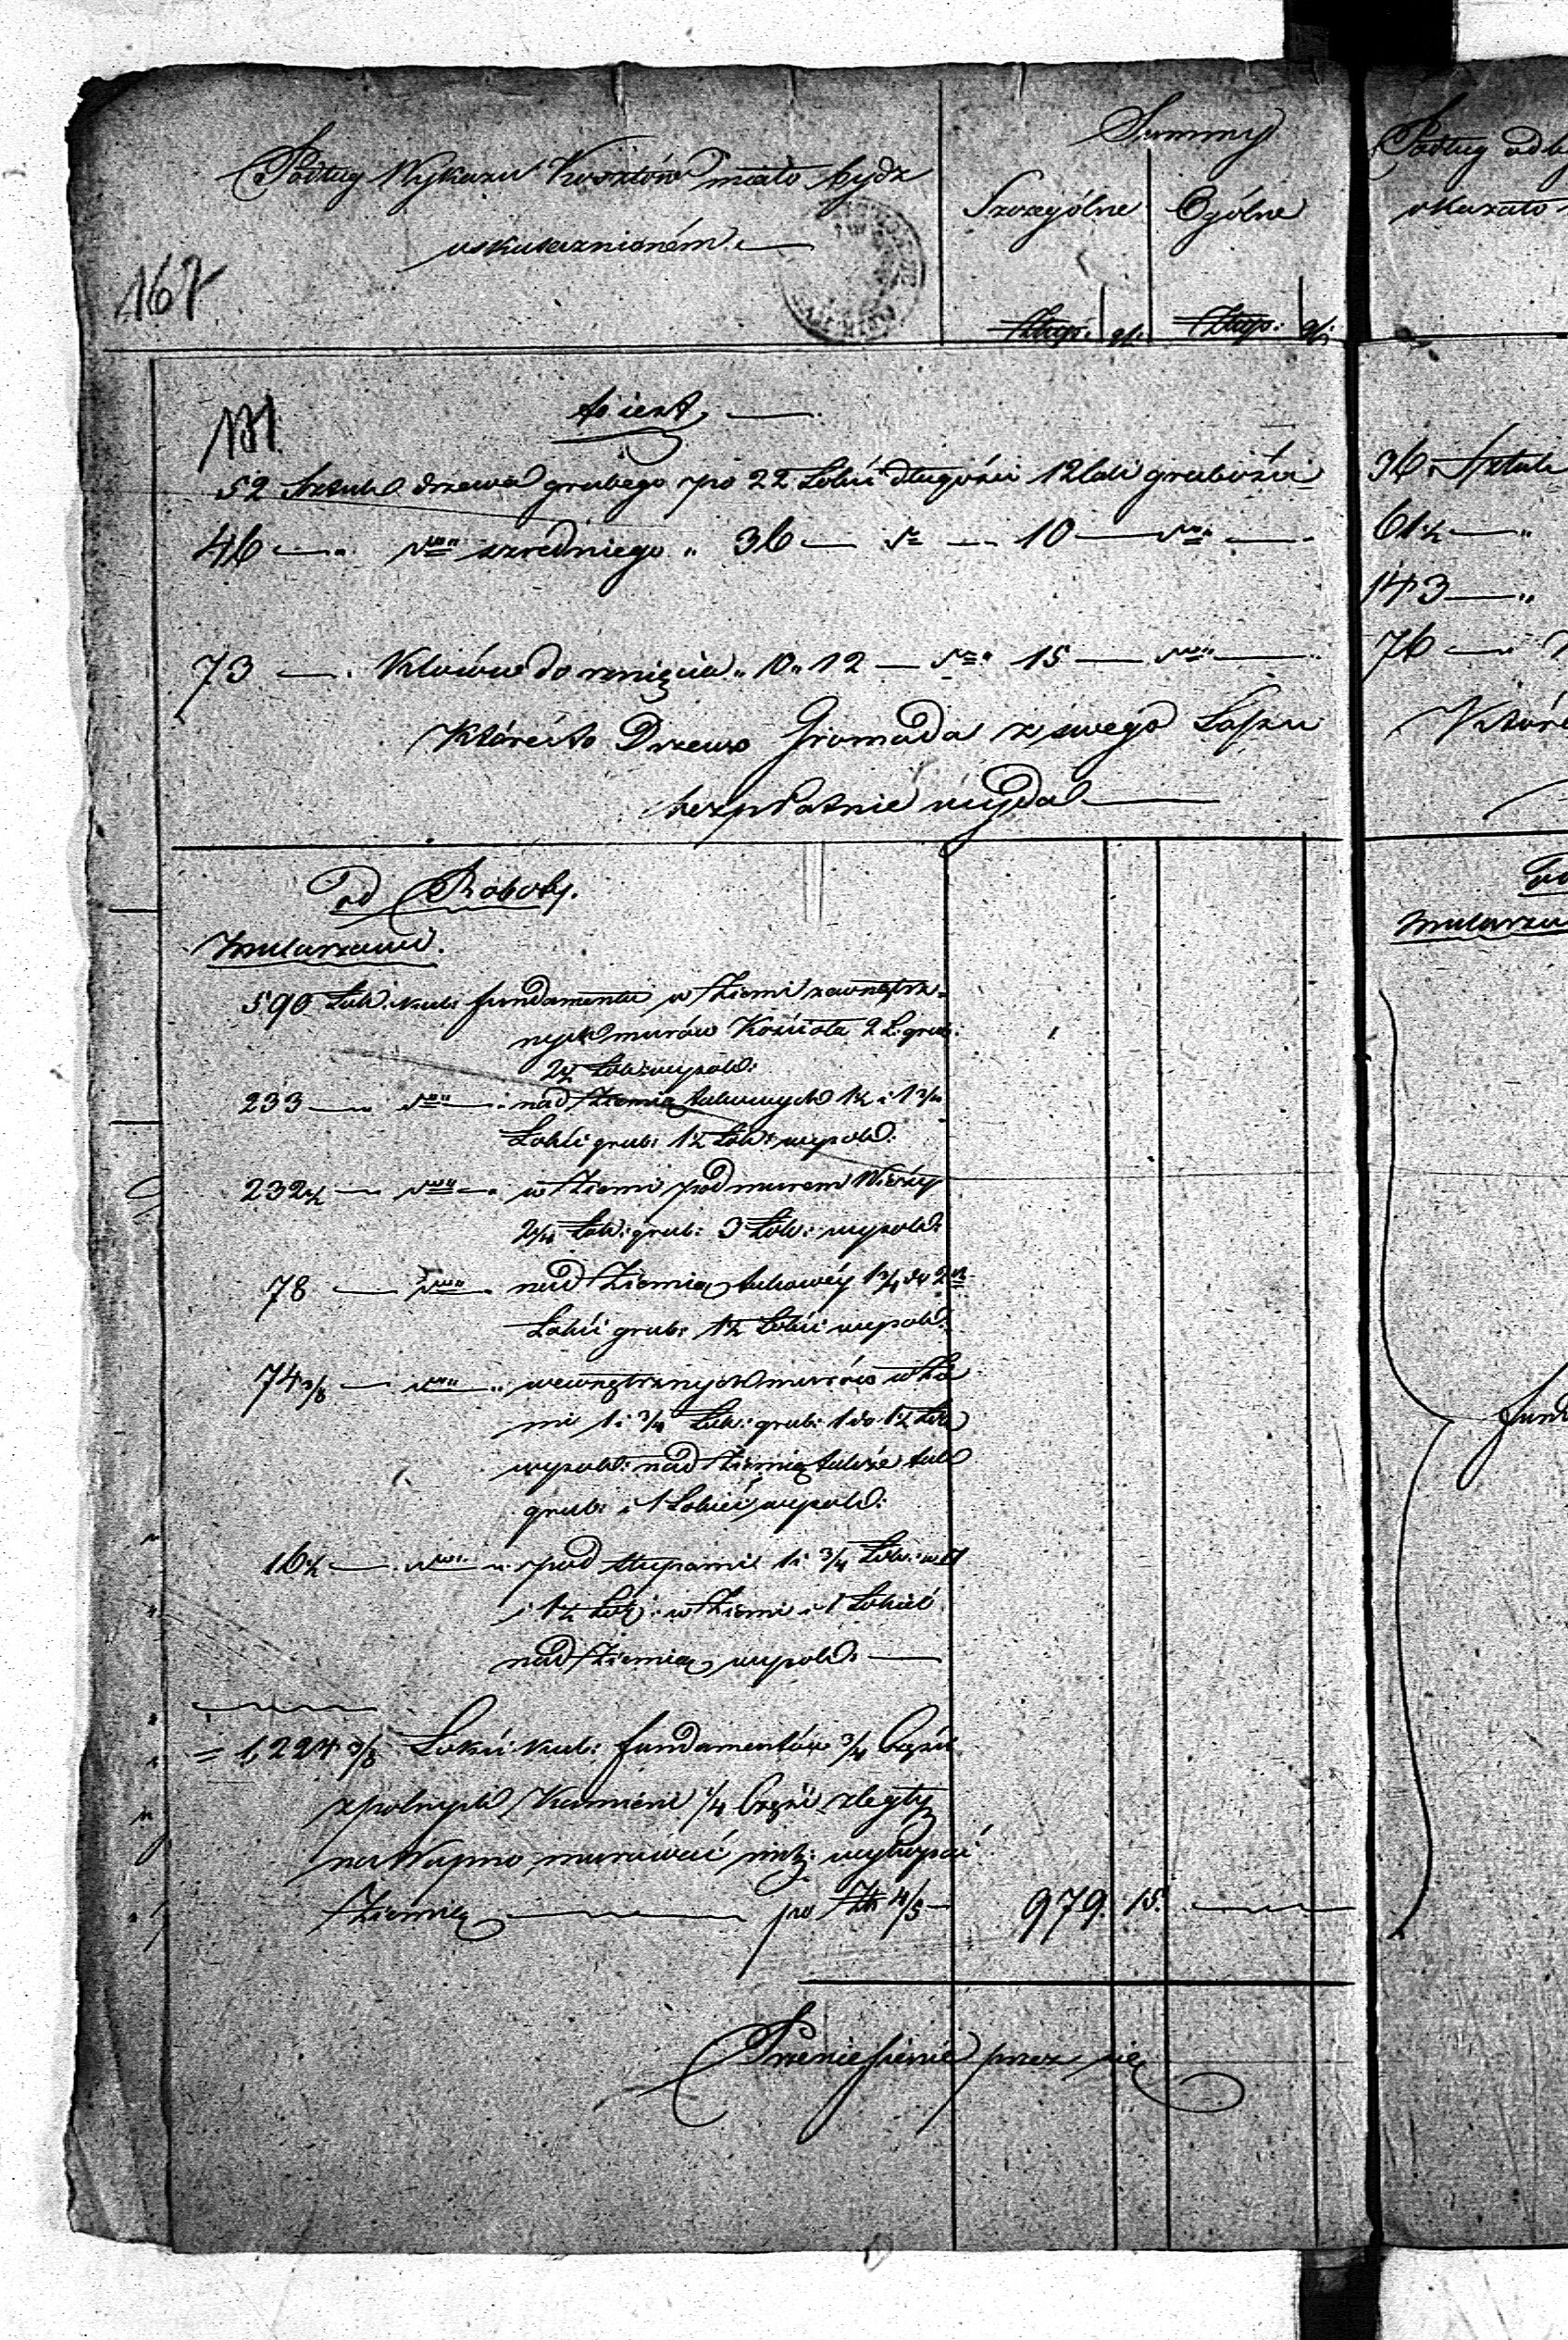 Podług Wykazu Kosztów miało bydz
uskutecznioném
Summy
Szczególne Ogólne
Złłtp: gr: Złłtp: gr:
167
131
to iest,
52 Sztuk drzewa grubego po 22 Łokci długości 12 cali grubości
46 — " dtto szredniego " 36 — dto — 10 — dtto —
73 — " Kloców do rznięcia " 10 " 12 — dto " 15 — dtto —
Któréto Drzewo Gromada z swego Lasu
bezpłatnie wyda
od Roboty.
Mularzowi.
590 Łok: kub: fundamentu w Ziemi zewnętrz-
nych murów Kościoła 2 Ł: grub:
2½ Łok: wysok:
233 — dtto — " nad Ziemią takowych 1½ i 1¾
Łokci grub: 1½ Łok: wysok:
232½ — dtto — " w Ziemi pod murem Wieży
2¼ Łok: grub: 3 Łok: wysok:
78 — dtto — " nad Ziemią takowéy 1¾ do 2
Łokci grub: 1½ Łokci wysok:
74⅜ — dtto — " wewnętrznych murów w Zie
mi 1 i ¾ Łok: grub: 1 do 1½ Łok
wysok: nad Ziemią także tak
grub: i 1 Łokieć wysok:
16½ — dtto — " pod słupami 1 i ¾ Łok: w □
i 1½ Łok: w Ziemi i 1 Łokieć
nad Ziemią wysok: —
= 1,224⅜ Łokci kub: fundamentów ¾ części
z polnych Kamieni ¼ części z cegły
na Wapno murować wykopać
Ziemię — po Zł 4/5 — 979. 15.
Przeniesienie przez się
Podług
okazało
36. Sztuk
61½ — "
143 — "
76 — "
Któré
od
Mularzo
fund